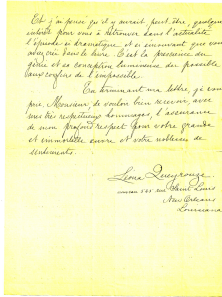 Et j'ai pensé qu'il y aurait peut-être, quelque
intérêt pour vous à retrouver dans l'actualité
l'épisode si dramatique et si émouvant que vous
avez créé dans le livre. C'est la prescience du
génie et sa conception lumineuse du possible
aux confins de l'impossible.
En terminant ma lettre, je vous
prie, Monsieur, de vouloir bien recevoir, avec
mes très respectueux hommages, l'assurance
de mon profond respect pour votre grande
et immortelle œuvre et votre noblesse de
sentiments.
Léona Queyrouze
rue Saint Louis
New Orleans
Louisiana